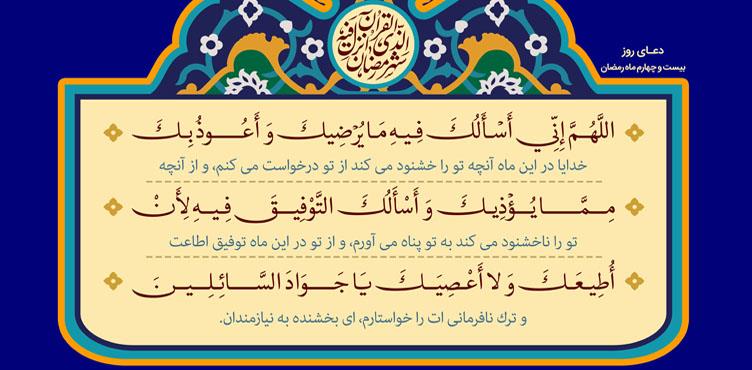 شَهْرُ رَمَضَانَ الَّذِي أُنْزِلَ فِيهِ الْقُرْآنُ
دعـای روز
بیست و چهارم ماه رمضان
اللَّهُمَّ إِنِّي أَسْأَلُكَ فِيهِ مَا يُرْضِيكَ وَ أَعُوذُ بِكَ
خدایا در این ماه آنچه تو را خشنود می کند از تو درخواست می کنم، و از آنچه
مِمَّا يُؤْذِيكَ وَ أَسْأَلُكَ التَّوْفِيقَ فِيهِ لِأَنْ
تو را ناخشنود می کند به تو پناه می آورم، و از تو در این ماه توفیق اطاعت
أُطِيعَكَ وَ لا أَعْصِيَكَ يَا جَوَادَ السَّائِلِينَ
و ترك نافرمانی ات را خواستارم، ای بخشنده به نیازمندان.